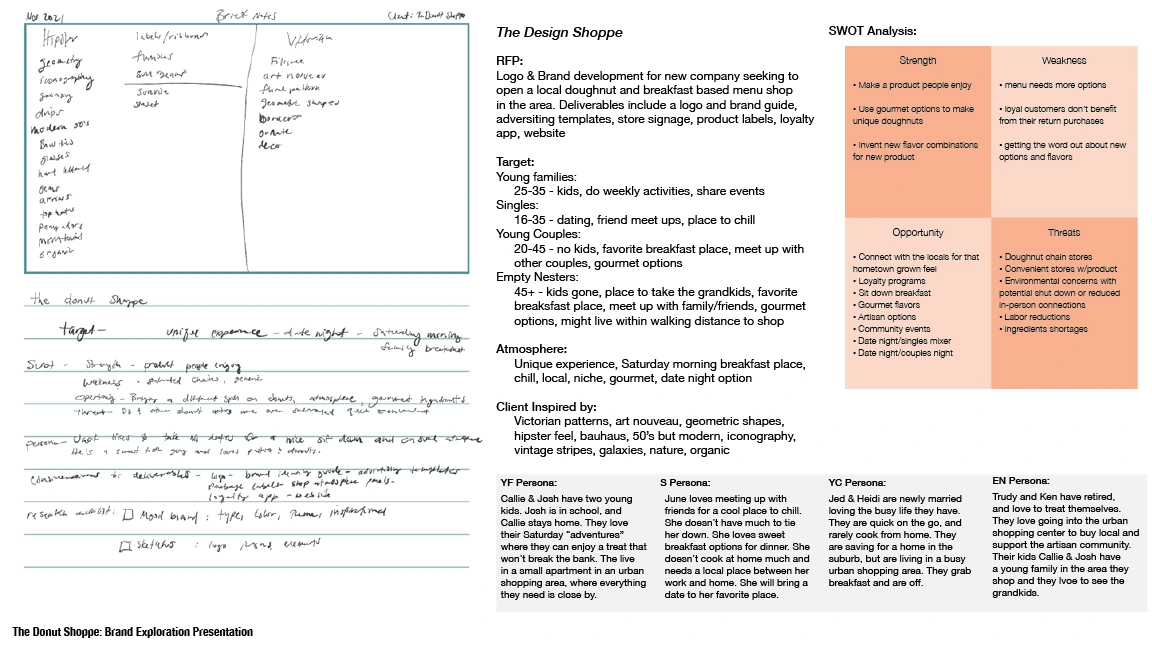 Nov 2021
Brief Notes
Client: The Donut Shoppe
Hipster
geometry
iconography
galaxy
drips
modern 50's
Bow ties
glasses
hand lettered
gems
arrows
top hats
mountains
organic
labels/ribbons
sunrise
sunset
Victorian
Filigree
art noveau
floral pattern
geometric shapes
ornate
deco
the donut Shoppe
target - unique experience - date night - Saturday morning
family breakfast
Swot - Strength - product people enjoy
weakness - saturated chains, generic
Persona -
He's a sweet tooth guy and loves
logo - brand identity guide - advertising templates
loyalty app - website
Mood board : type, color,
Sketches : logo
The Design Shoppe
RFP:
Logo & Brand development for new company seeking to
open a local doughnut and breakfast based menu shop
in the area. Deliverables include a logo and brand guide,
adversiting templates, store signage, product labels, loyalty
app, website
Target:
Young families:
25-35 - kids, do weekly activities, share events
Singles:
16-35 - dating, friend meet ups, place to chill
Young Couples:
20-45 - no kids, favorite breakfast place, meet up with
other couples, gourmet options
Empty Nesters:
45+ - kids gone, place to take the grandkids, favorite
breaksfast place, meet up with family/friends, gourmet
options, might live within walking distance to shop
Atmosphere:
Unique experience, Saturday morning breakfast place,
chill, local, niche, gourmet, date night option
Client Inspired by:
Victorian patterns, art nouveau, geometric shapes,
hipster feel, bauhaus, 50's but modern, iconography,
vintage stripes, galaxies, nature, organic
SWOT Analysis:
Strength
• Make a product people enjoy
• Use gourmet options to make
unique doughnuts
• Invent new flavor combinations
for new product
Weakness
• menu needs more options
• loyal customers don't benefit
from their return purchases
• getting the word out about new
options and flavors
Opportunity
• Connect with the locals for that
hometown grown feel
• Loyalty programs
• Sit down breakfast
• Gourmet flavors
• Artisan options
• Community events
• Date night/singles mixer
• Date night/couples night
Threats
• Doughnut chain stores
• Convenient stores w/product
• Environmental concerns with
potential shut down or reduced
in-person connections
• Labor reductions
• Ingredients shortages
YF Persona:
Callie & Josh have two young
kids. Josh is in school, and
Callie stays home. They love
their Saturday "adventures"
where they can enjoy a treat that
won't break the bank. The live
in a small apartment in an urban
shopping area, where everything
they need is close by.
S Persona:
June loves meeting up with
friends for a cool place to chill.
She doesn't have much to tie
her down. She loves sweet
breakfast options for dinner. She
doesn't cook at home much and
needs a local place between her
work and home. She will bring a
date to her favorite place.
YC Persona:
Jed & Heidi are newly married
loving the busy life they have.
They are quick on the go, and
rarely cook from home. They
are saving for a home in the
suburb, but are living in a busy
urban shopping area. They grab
breakfast and are off.
EN Persona:
Trudy and Ken have retired,
and love to treat themselves.
They love going into the urban
shopping center to buy local and
support the artisan community.
Their kids Callie & Josh have
a young family in the area they
shop and they lvoe to see the
grandkids.
The Donut Shoppe: Brand Exploration Presentation